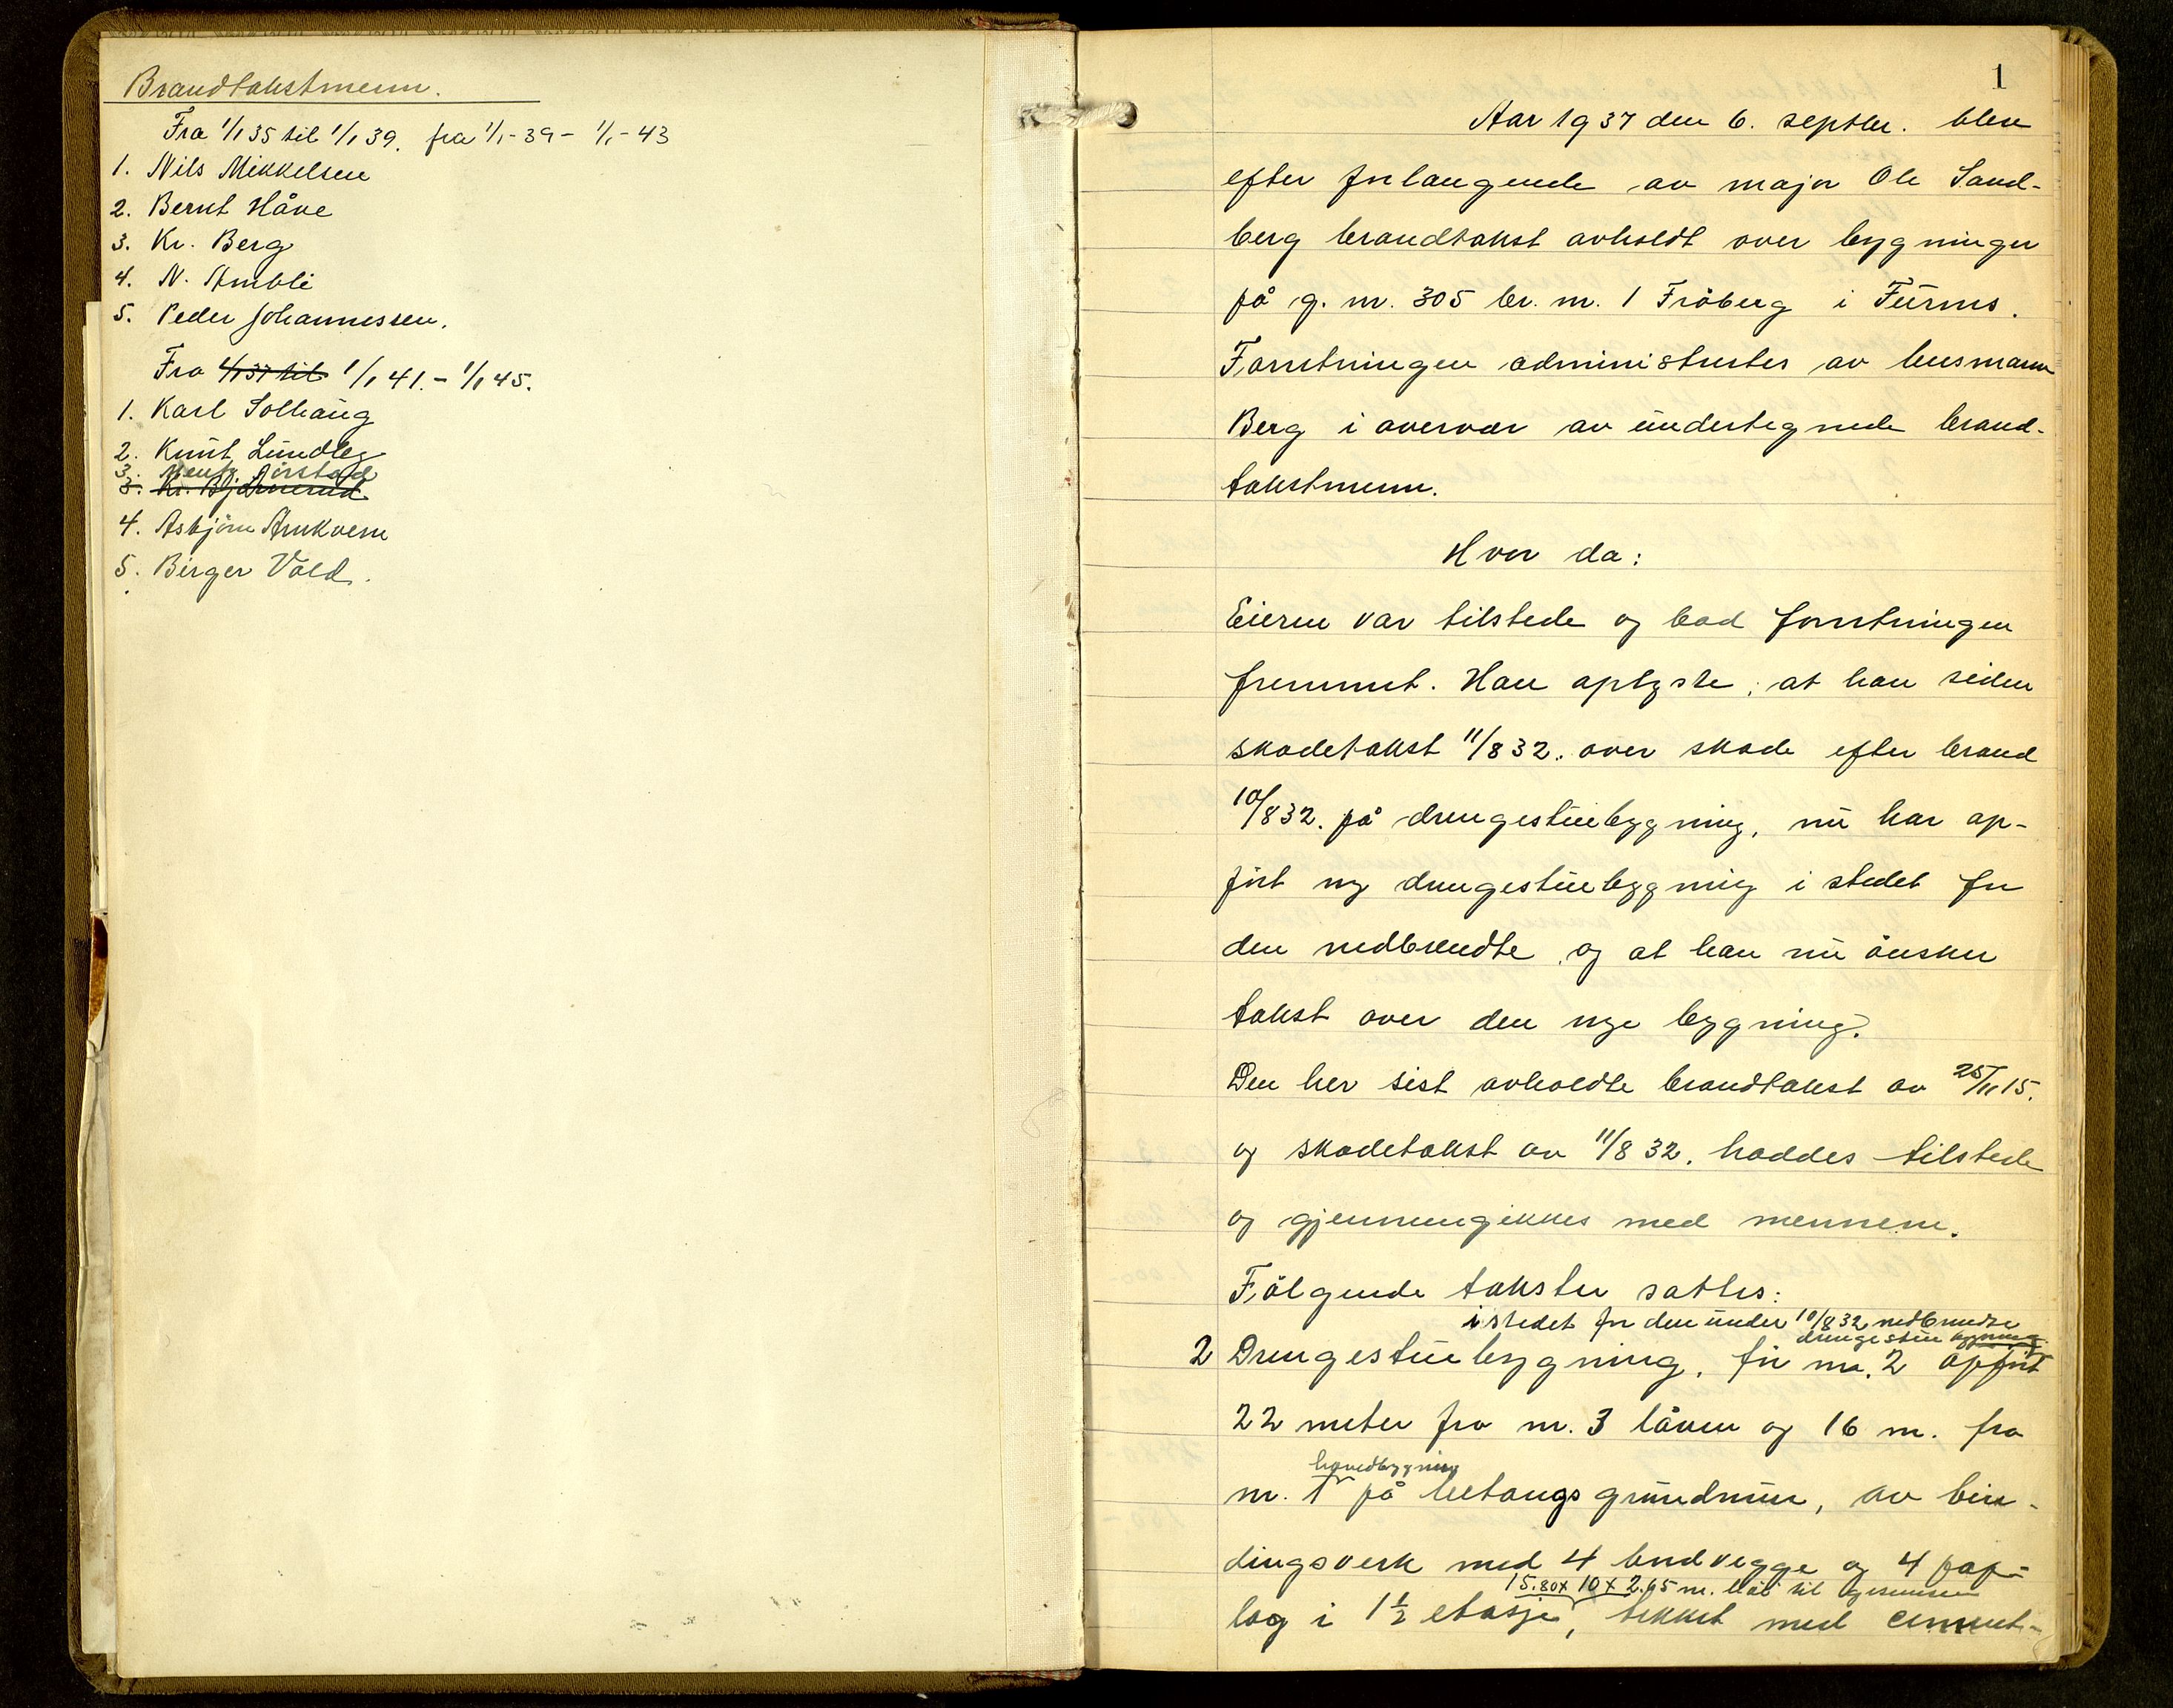 Brandtakstmenn.
Fra 1/1 35 til 1/1 39. fra 1/1-39- 1/1-43
1. Nils Mikkelsen
2. Bernt Håve
3. Kr. Berg
4. N. Ambli
5. Peder Johannessen.
Fra 1/1 37 til 1/1 41.- 1/1 45.
1. Karl Solhaug
2. Knut Lundby
3. Jørstad
3. Kr. Bjørnerud
4. Asbjørn Arnkvern
5. Birger Vold.
1
Aar 1937 den 6. septbr. blev
efter forlangende av major Ole Sand-
berg brandtakst avholdt over bygninger
på g. nr. 305 br. nr. 1 Frøberg i Furnes.
Forretningen administrertes av lensmann
Berg i overvær av undertegnede brand-
takstmenn.
Hvor da:
Eieren var tilstede og bad forretningen
fremmet. Han oplyste, at han siden
skadetakst 11/8 32. over skade efter brand
10/8 32. på drengestuebygning, nu har op-
ført ny drengestuebygning i stedet for
den nedbrendte og at han nu ønsker
takst over den nye bygning.
Den her sist avholdte brandtakst av 25/11 15.
og skadetakst av 11/8 32. haddes tilstede
og gjennemgikkes med mennene.
Følgende takster sattes:
istedet for den under 10/8 32 nedbrendte
drengestue bygning
2 Drengestuebygning, før nr. 2 opført
22 meter fra nr. 3 låven og 16 m. fra
hovedbygning
nr. 1 på betongs grundmur, av bin-
dingsverk med 4 bordvegge og 4 pap-
15.80 x 10 x 2.65 m. høi til gesimsen
lag i 1 1/2 etasje, tekket med cement-